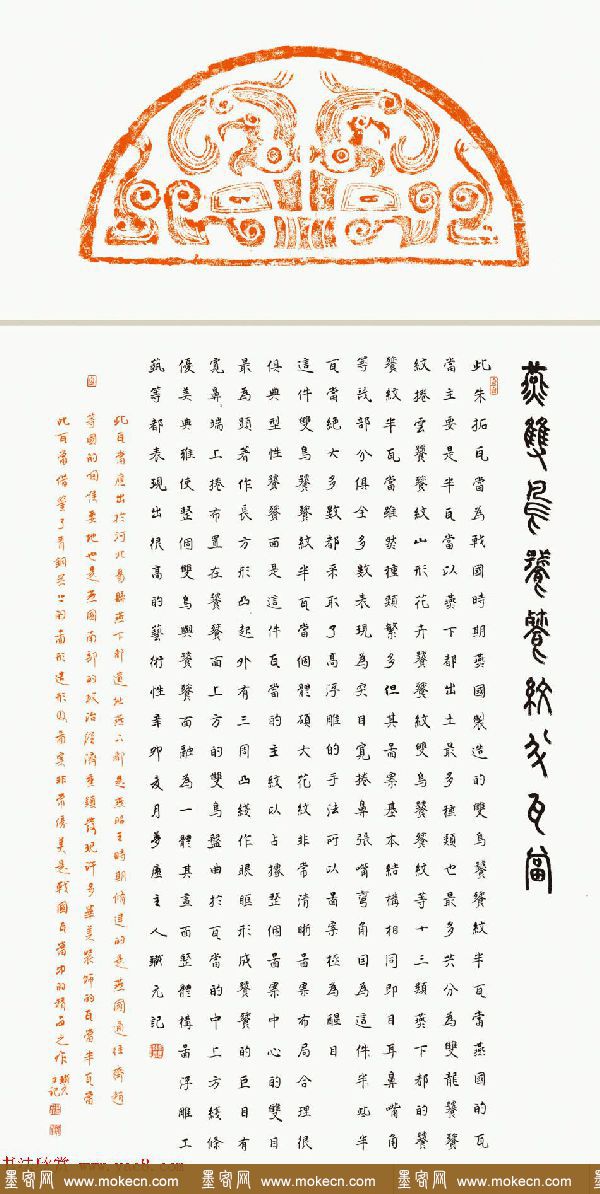 燕雙鳥饕餮紋半瓦當
此朱拓瓦當為戰國時期燕國製造的雙鳥饕餮紋半瓦當燕國的瓦
當主要是半瓦當以燕下都出土最多種類也最多共分為雙龍饕餮
紋捲雲饕餮紋山形花卉饕餮紋雙鳥饕餮紋等十三類燕下都的饕
餮紋半瓦當雖然種類繁多但其畐案基本結構相同即目耳鼻嘴角
等部分俱全多數表現為突目寬捲鼻張嘴彎角因為這件半瓦半
瓦當絕大多數都采取了高浮雕的手法所以畐案極為醒目
這件雙鳥饕餮紋半瓦當個體碩大花紋非常清晰畐案布局合理很
俱典型性饕餮面是這件瓦當的主紋以占據整個畐案中心的雙目
最為顯著作長方形凸起外有三周凸綫作眼眶形成饕餮的巨目有
寬鼻鼻端上捲布置在饕餮面上方的雙鳥盤曲於瓦當的中上方綫條
優美典雅使整個雙鳥與饕餮面融為一體其畫面整體構畐浮雕工
藝等都表現出很高的藝術性辛卯亥月夢廬主人職元記
此瓦當應出於河北易縣燕下都遺址燕下都是燕昭王時期脩造的是燕國通往齊趙
等國的咽喉要地也是燕國南部的政治經濟重鎮發現許多華美裝飾的瓦當半瓦當
此瓦當借鑒了青銅器上的畐形造形畐案非常優美是戰國瓦當中的精品之作
又記
书法欣赏 www.yac8.com
墨客网 www.mokecn.com 墨客网 www.mokecn.com 墨客网 www.mokecn.com